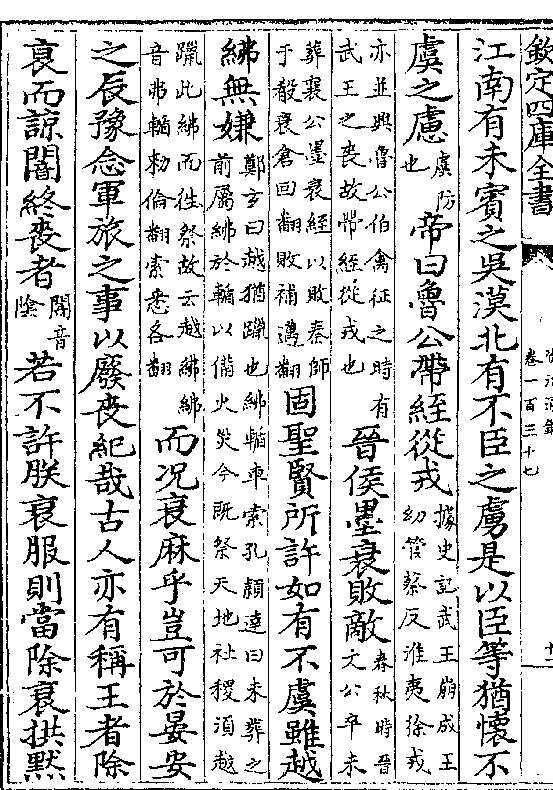 欽定四庫全書
卷一百三十七
江南有未賓之吳漠北有不臣之虜是以臣等猶懷不
虞之慮虞防也帝曰魯公帶絰從戎據史記武王崩成王幼管蔡反淮夷徐戎
亦並興魯公伯禽征之時有武王之喪故帶絰從戎也晉侯墨衰敗敵春秋時晉文公卒未
葬襄公墨衰絰以敗秦師于殽衰倉回翻敗補邁翻固聖賢所許如有不虞雖越
紼無嫌鄭玄曰越猶躐也紼輴車索孔頴達曰未葬之前屬紼於輴以備火災今既祭天地社稷須越
躐此紼而徃祭故云越紼紼音弗輴勑倫翻索悉各翻而况衰麻乎豈可於晏安
之辰豫念軍旅之事以廢喪紀哉古人亦有稱王者除
衰而諒闇終喪者闇音陰若不許朕衰服則當除衰拱默